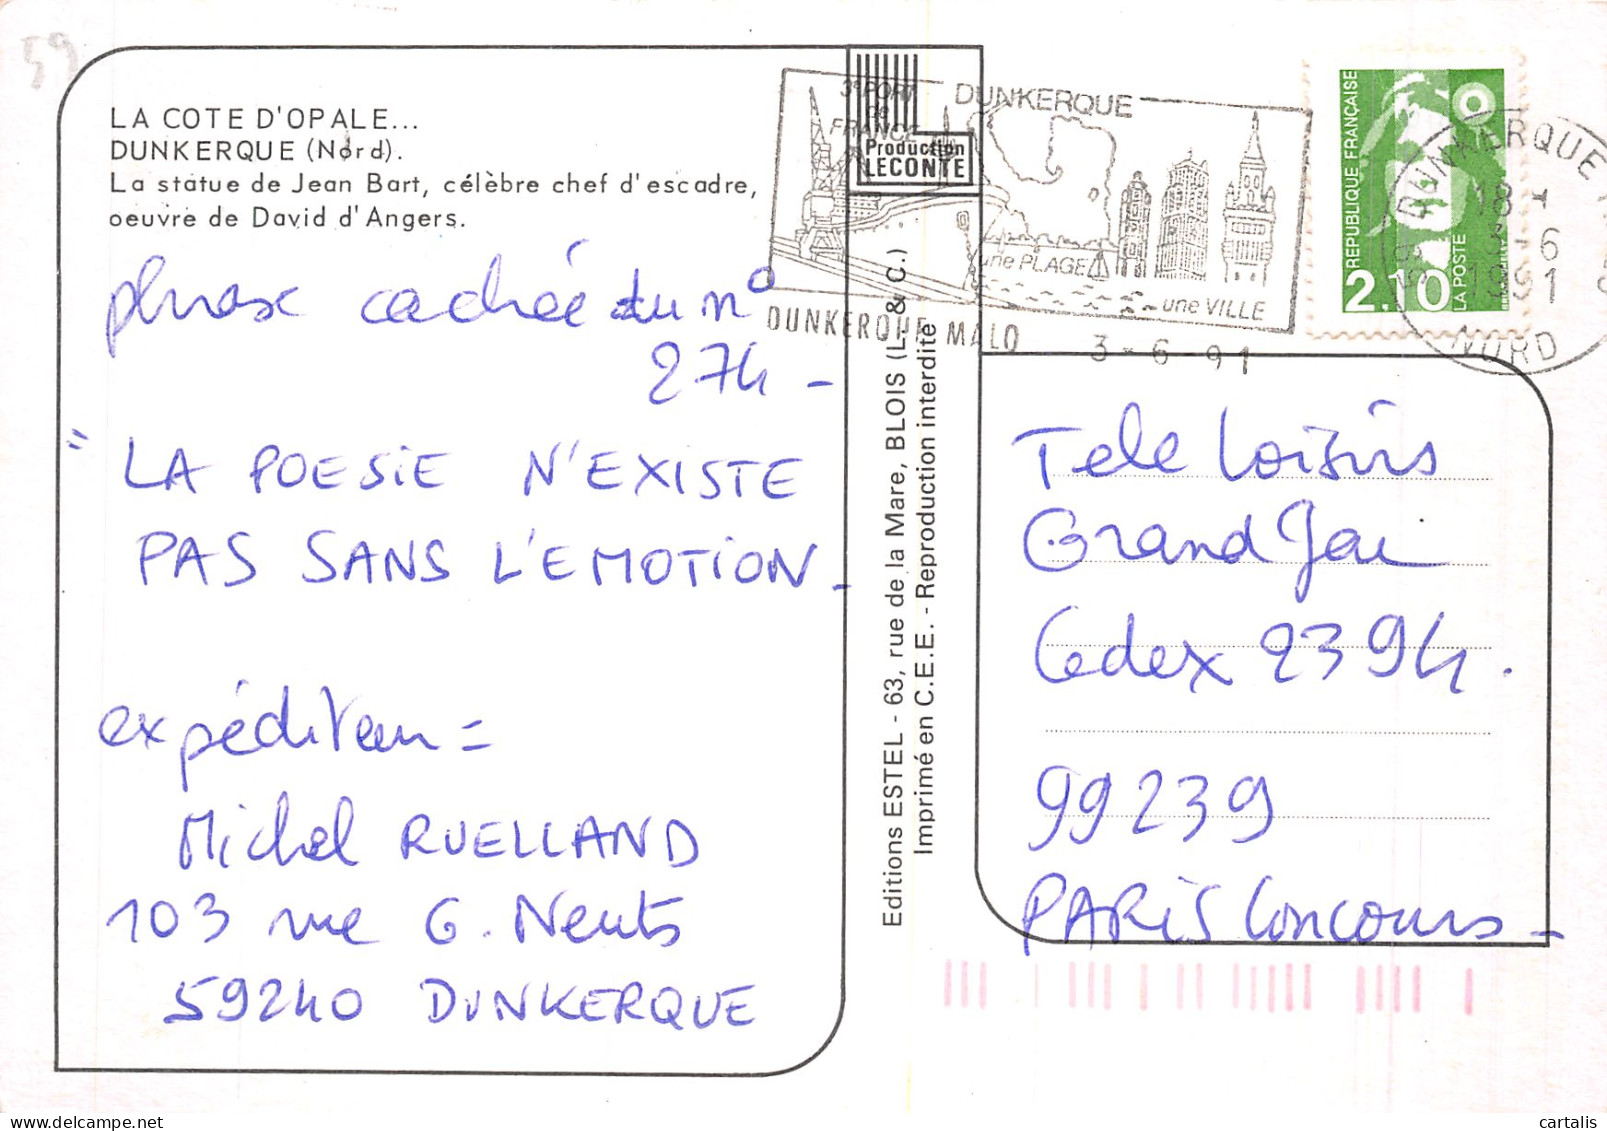 59
LA COTE D'OPALE...
DUNKERQUE (Nord).
La statue de Jean Bart, célèbre chef d'escadre,
oeuvre de David d'Angers.
phrase cachée du n°
274 -
"LA POESIE N'EXISTE
PAS SANS L'EMOTION -
expéditeur =
Michel RUELLAND
103 rue G. Neuts
59240 DUNKERQUE
Production
LECONTE
Editions ESTEL - 63, rue de la Mare, BLOIS (L. & C.)
Imprimé en C.E.E. - Reproduction interdite
3e PORT
DE
FRANCE
DUNKERQUE
une PLAGE
une VILLE
DUNKERQUE MALO
3-6-91
REPUBLIQUE FRANÇAISE
2.10
LA POSTE
59 DUNKERQUE
18 H
3-6
1991
NORD
Tele Loisirs
Grand Jeu
Cedex 2394.
99239
PARIS Concours -
cartalis